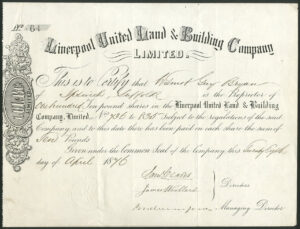 No. 64
Liverpool United Land & Building Company
LIMITED.
This is to Certify that Wilmot Guy Bryan
Ipswich Suffolk is the Proprietor of
One hundred Ten pound shares in the Liverpool United Land & Building
Company, Limited. Nos 736 to 835 Subject to the regulations of the said
Company and to this date there has been paid on each share the sum of
Four Pounds
Given under the Common Seal of the Company this twenty fifth
day of April 1876
James
Directors
Managing Director